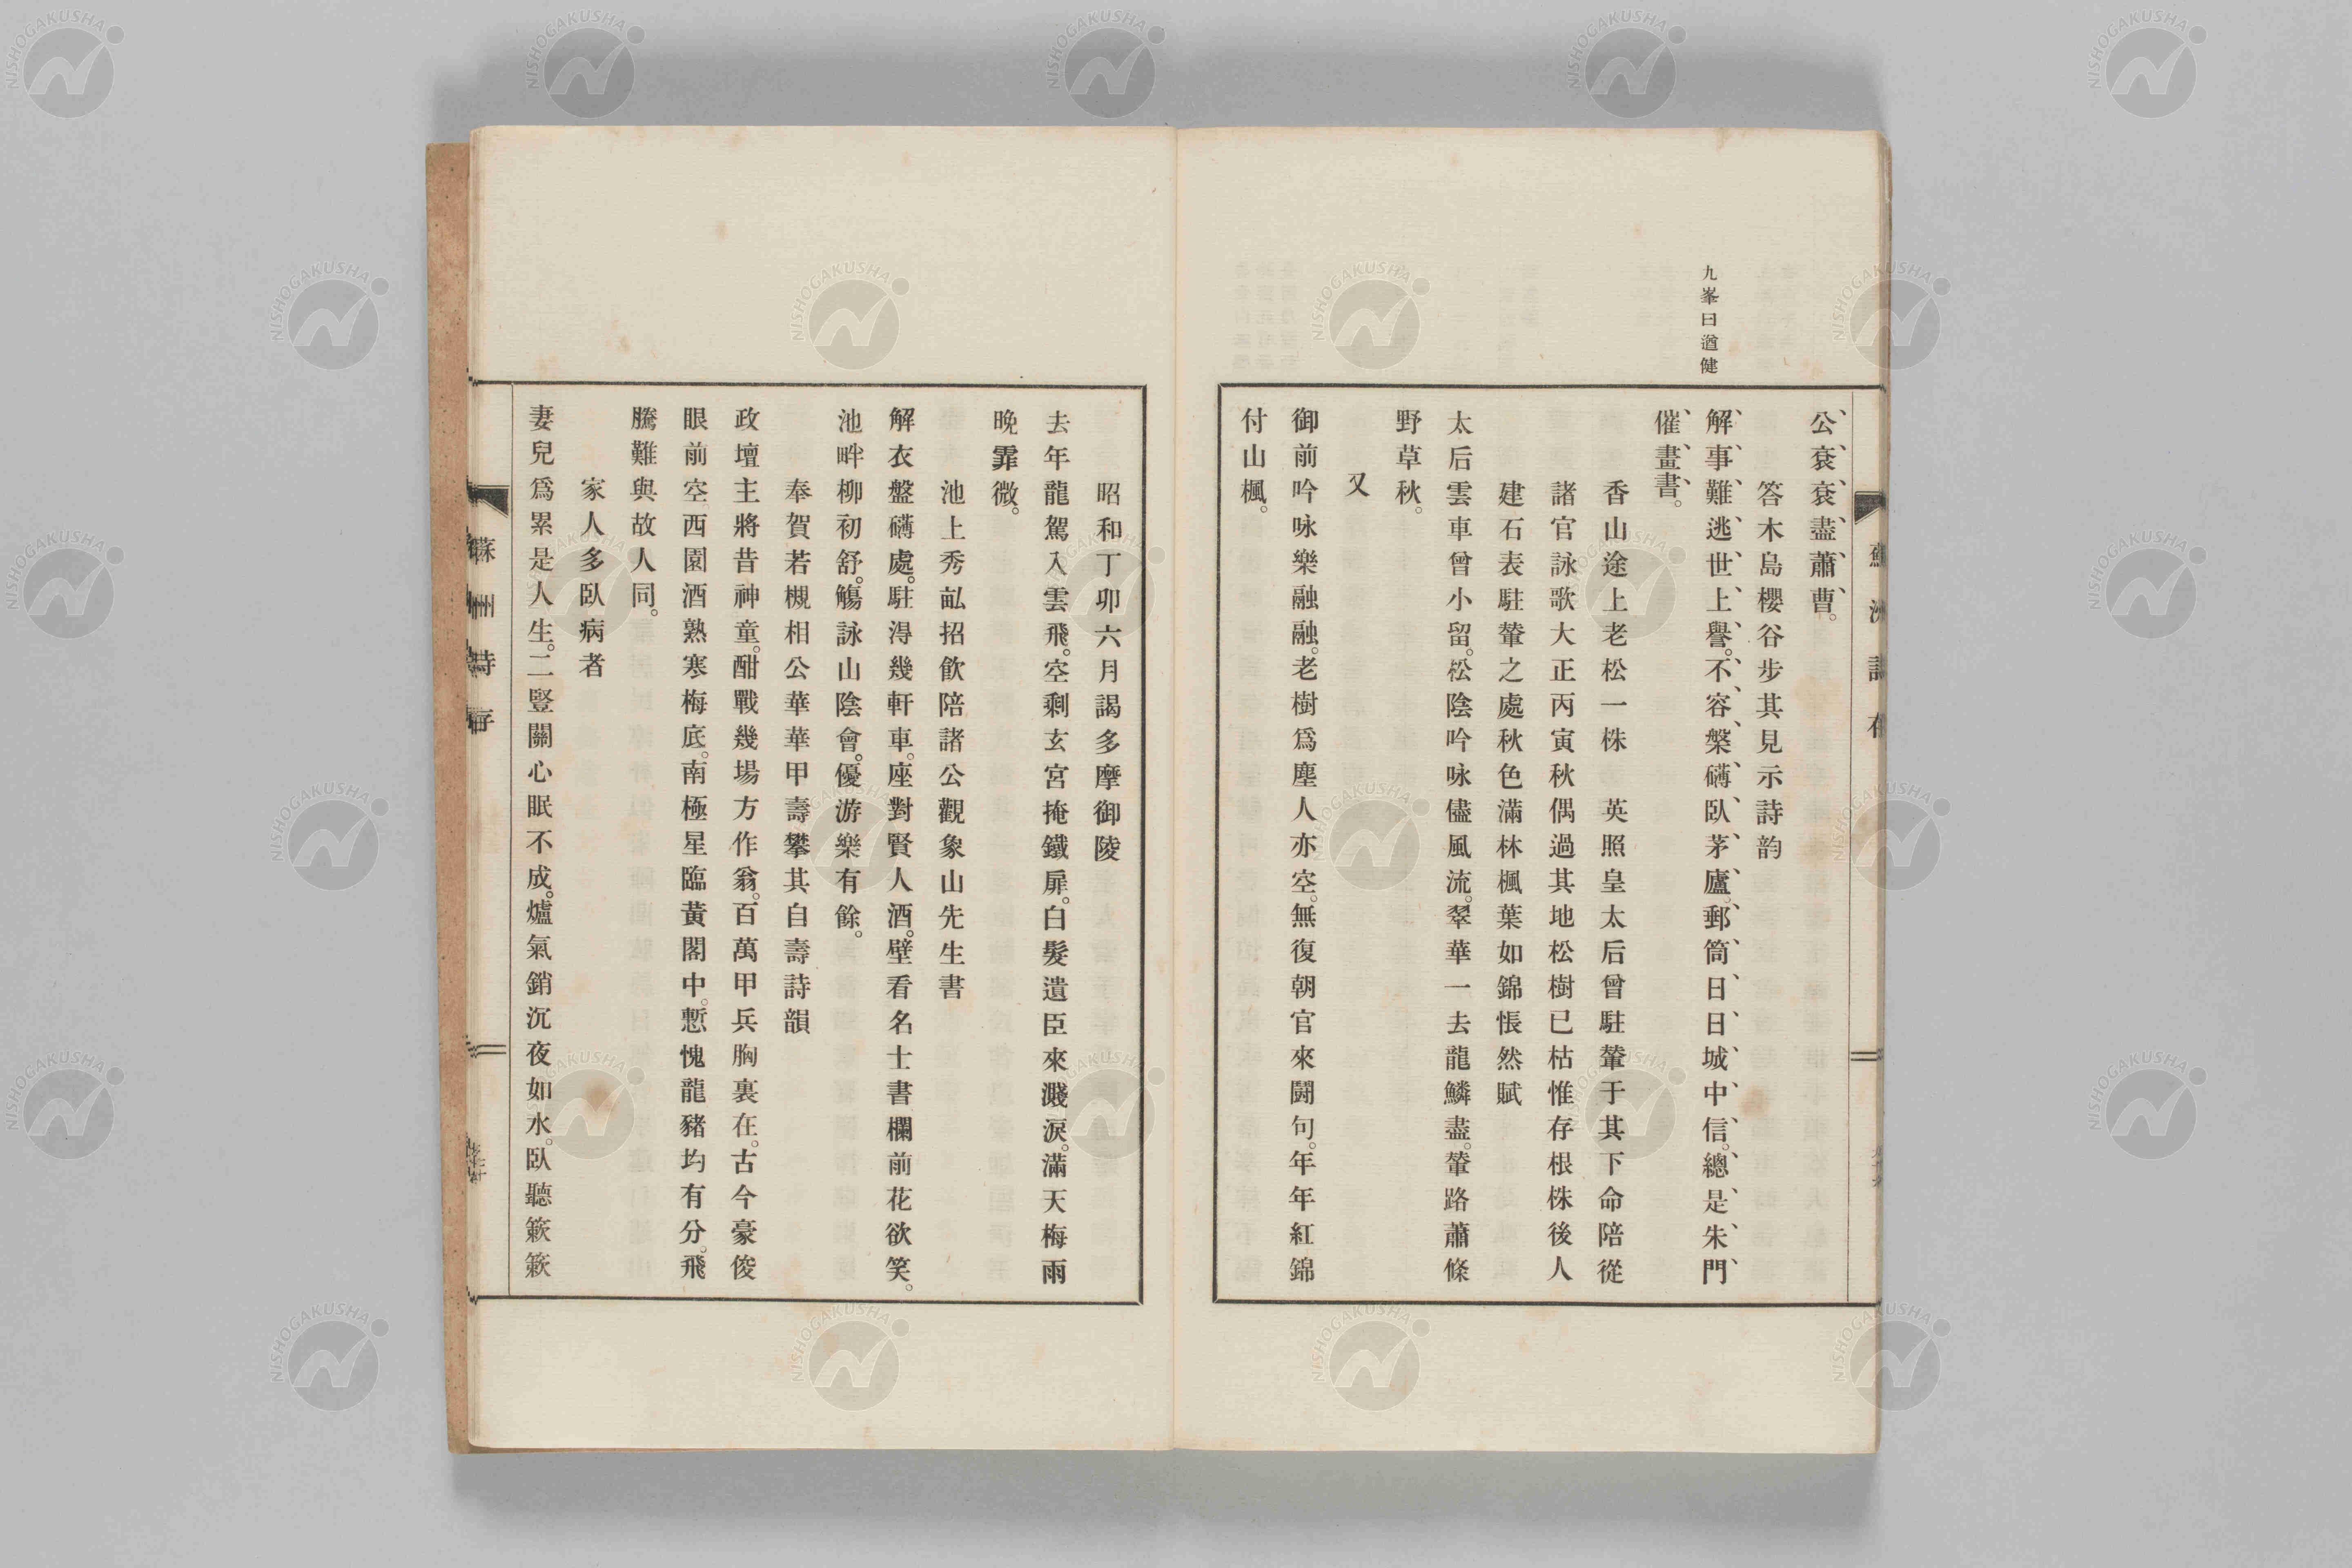 九峯曰遒健
公袞袞盡蕭曹。
答木島櫻谷步其見示詩韵
解事難逃世上譽。不容槃礴臥茅廬。郵筒日日城中信。總是朱門
催畫書。
香山途上老松一株　英照皇太后曾駐輦于其下命陪從
諸官詠歌大正丙寅秋偶過其地松樹已枯惟存根株後人
建石表駐輦之處秋色滿林楓葉如錦悵然賦
太后雲車曾小留。松陰吟咏儘風流。翠華一去龍鱗盡。輦路蕭條
野草秋。
又
御前吟咏樂融融。老樹爲塵人亦空。無復朝官來鬪句。年年紅錦
付山楓。
昭和丁卯六月謁多摩御陵
去年龍駕入雲飛。空剩玄宮掩鐵扉。白髮遺臣來濺淚。滿天梅雨
晚霏微。
池上秀畝招飮陪諸公觀象山先生書
解衣盤礴處。駐得幾軒車。座對賢人酒。壁看名士書欄前花欲笑。
池畔柳初舒。觴詠山陰會。優游樂有餘。
奉賀若槻相公華華甲壽攀其自壽詩韻
政壇主將昔神童。酣戰幾場方作翁。百萬甲兵胸裏在。古今豪俊
眼前空。西園酒熟寒梅底。南極星臨黃閣中。慙愧龍豬均有分。飛
騰難與故人同。
家人多臥病者
妻兒爲累是人生。二豎關心眠不成。爐氣銷沉夜如水。臥聽簌簌